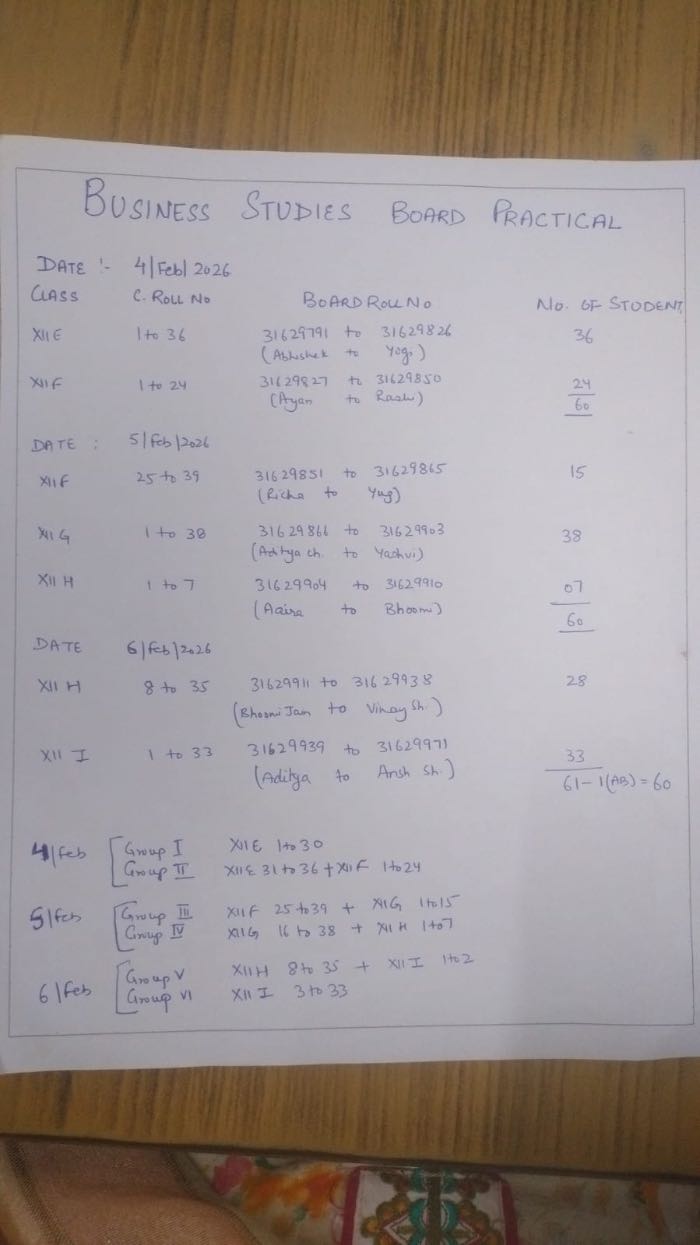 BUSINESS STUDIES BOARD PRACTICAL
DATE :- 4/Feb/2026
CLASS C. ROLL NO BOARD ROLL NO NO. OF STUDENT
XII E 1 to 36 31629791 to 31629826 36
(Abhishek to Yogi)
XII F 1 to 24 31629827 to 31629850 24
(Ayan to Rashi) 60
DATE : 5/Feb/2026
XII F 25 to 39 31629851 to 31629865 15
(Richa to Yug)
XII G 1 to 38 31629866 to 31629903 38
(Aditya ch. to Yashvi)
XII H 1 to 7 31629904 to 31629910 07
(Aaira to Bhoomi) 60
DATE 6/Feb/2026
XII H 8 to 35 31629911 to 31629938 28
(Bhoomi Jain to Vinay Sh.)
XII I 1 to 33 31629939 to 31629971 33
(Aditya to Ansh Sh.) 61-1(AB) = 60
4/Feb Group I XII E 1 to 30
Group II XII E 31 to 36 + XII F 1 to 24
5/Feb Group III XII F 25 to 39 + XII G 1 to 15
Group IV XII G 16 to 38 + XII H 1 to 7
6/Feb Group V XII H 8 to 35 + XII I 1 to 2
Group VI XII I 3 to 33